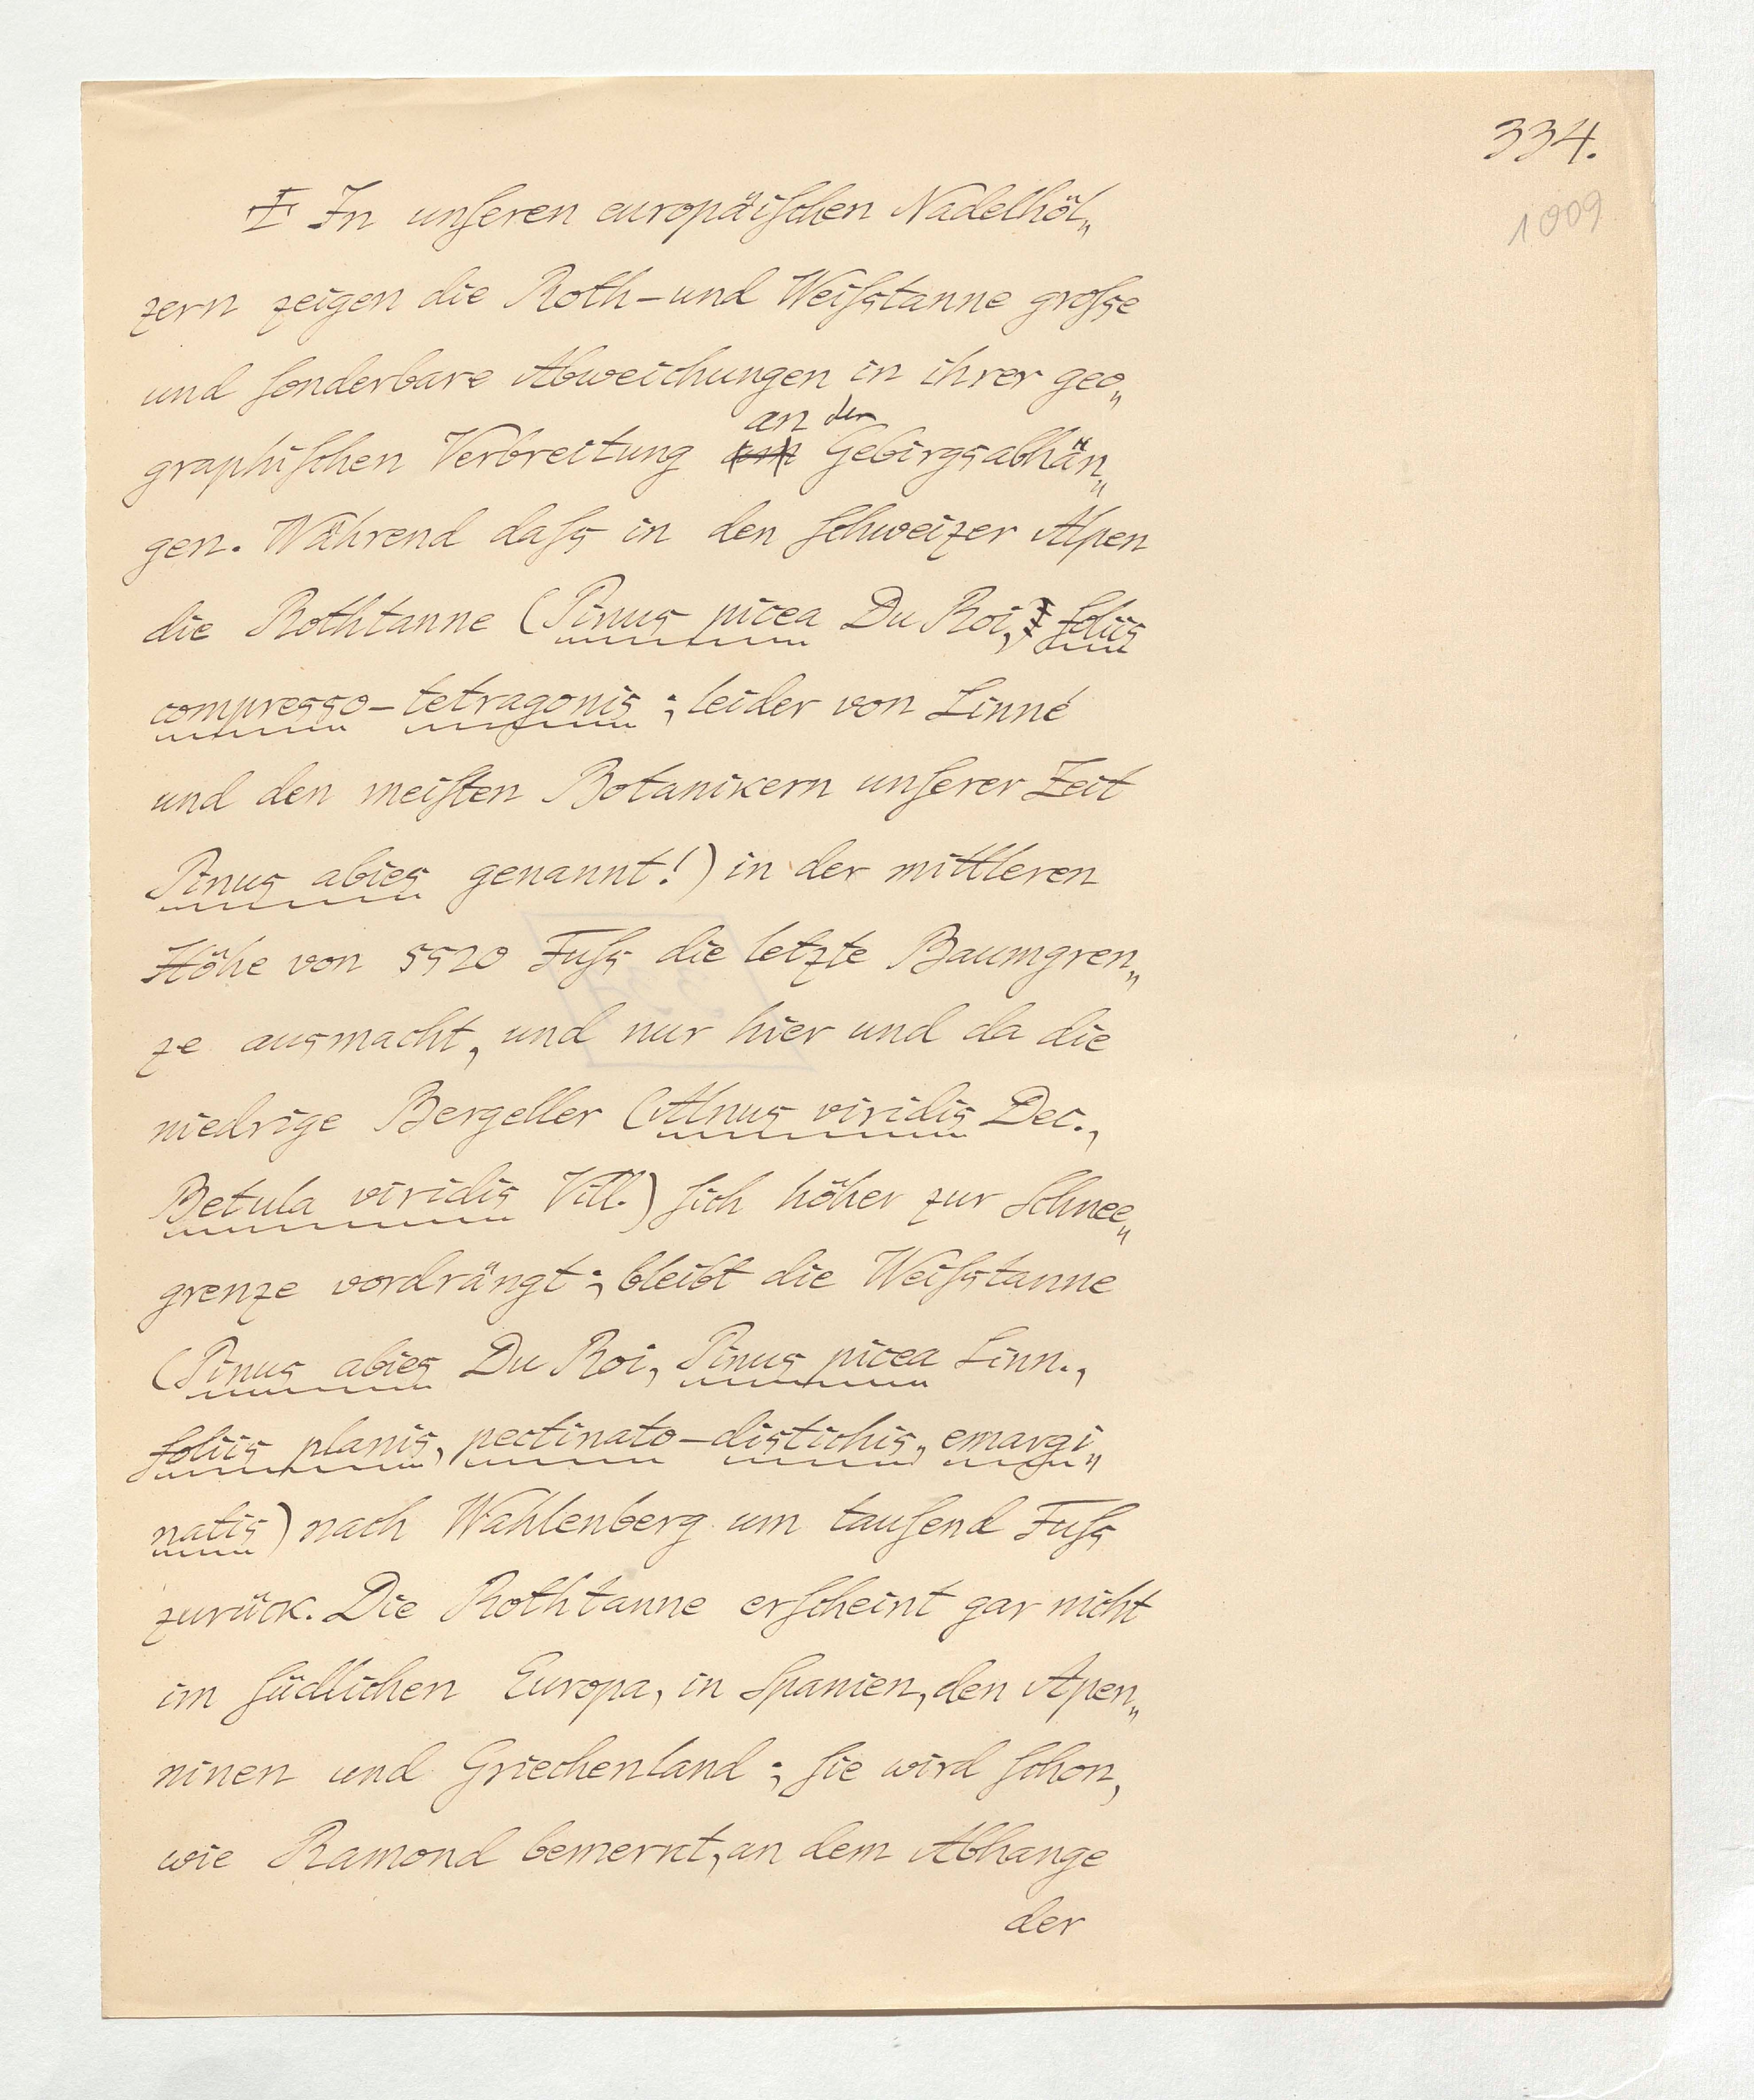 334.
1009
Ŧ In unſeren europäiſchen Nadelhöl„
zern zeigen die Roth-und Weiſstanne groſse
und ſonderbare Abweichungen in ihrer geo„
an der
graphiſchen Verbreitung am Gebirgsabhän„
gen. Während daſs in den Schweizer Alpen
die Rothtanne (Pinus picea Du Roi, foliis
compresso-tetragonis; leider von Linné
und den meiſten Botanikern unſerer Zeit
Pinus abies genannt!) in der mittleren
Höhe von 5520 Fuſs die letzte Baumgren„
ze ausmacht, und nur hier und da die
niedrige Bergeller (Alnus viridis Dec.,
Betula viridis Vill.) ſich höher zur Schnee„
grenze vordrängt; bleibt die Weiſstanne
(Pinus abies Du Roi, Pinus picea Linn.,
foliis planis, pectinato-distichis, emargi„
natis) nach Wahlenberg um tauſend Fuſs
zurück. Die Rothtanne erſcheint gar nicht
im ſüdlichen Europa, in Spanien, den Apen„
ninen und Griechenland; ſie wird ſchon,
wie Ramond bemerkt, an dem Abhange
der